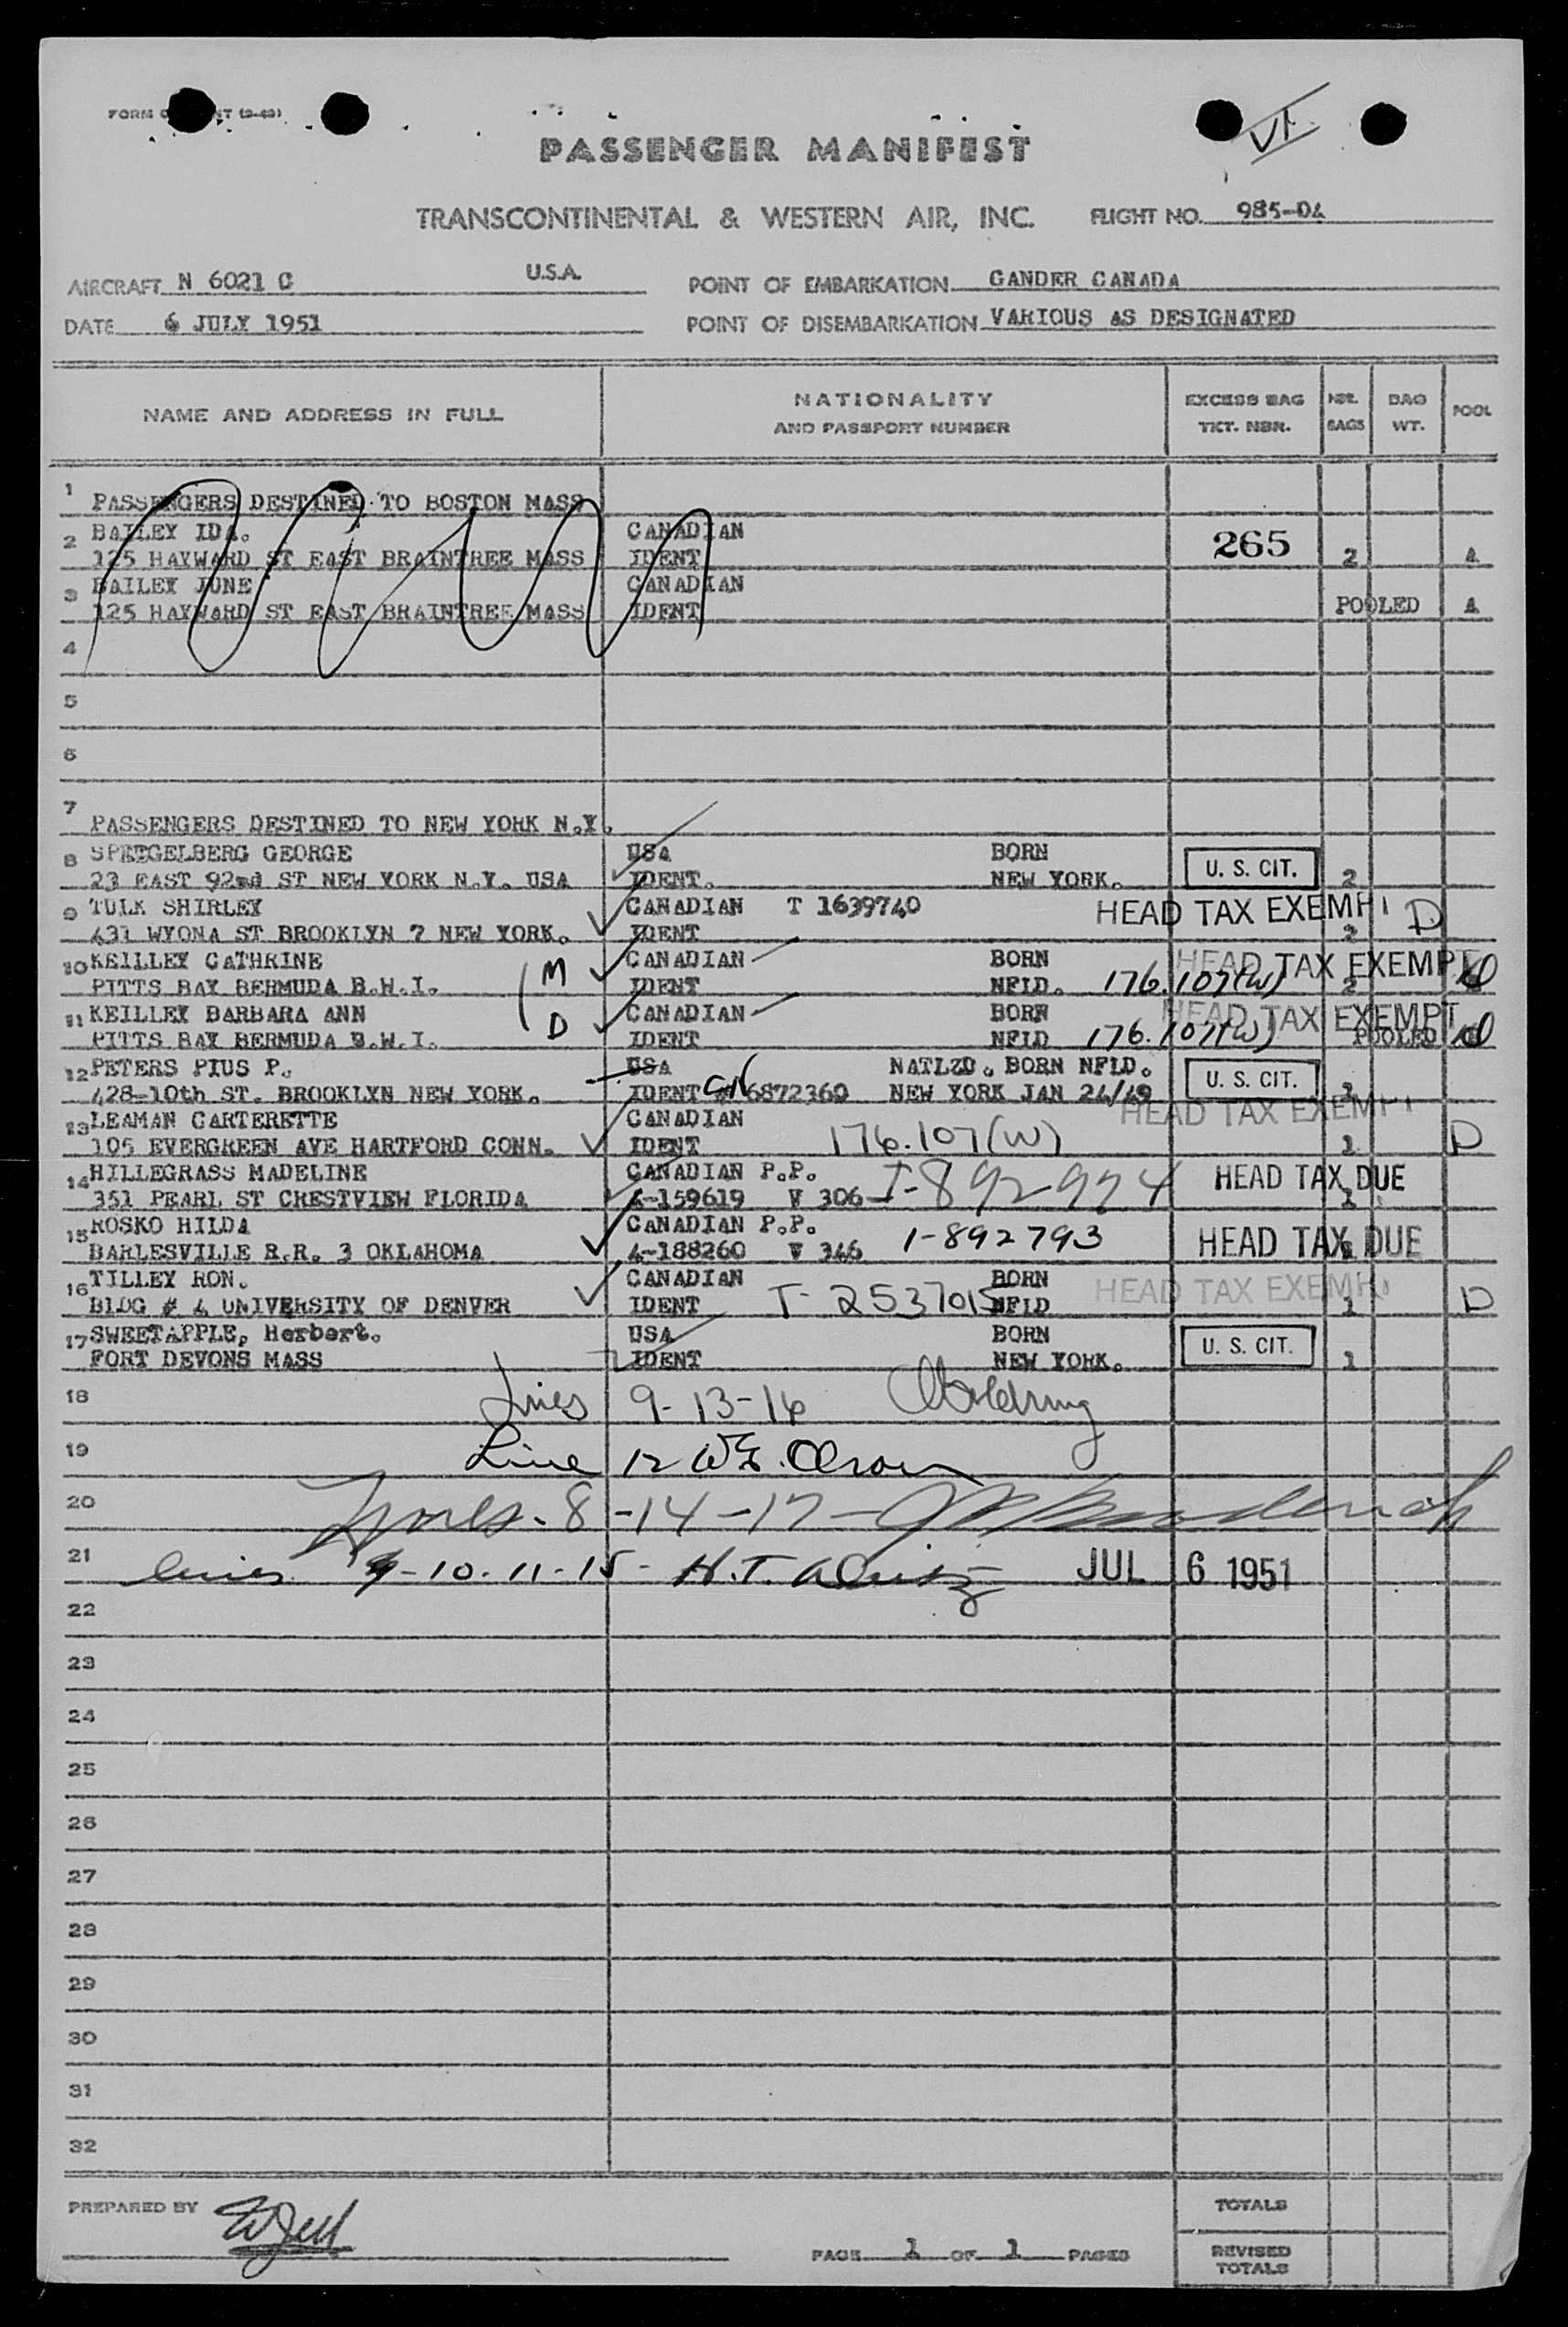 PASSENGER MANIFEST
TRANSCONTINENTAL & WESTERN AIR, INC. FLIGHT NO. 985-04
AIRCRAFT N 6021 C U.S.A. POINT OF EMBARKATION GANDER CANADA
DATE 6 JULY 1951 POINT OF DISEMBARKATION VARIOUS AS DESIGNATED
NAME AND ADDRESS IN FULL NATIONALITY AND PASSPORT NUMBER EXCESS BAG TKT. NBR. NBR. BAGS BAG WT. POOL
1 PASSENGERS DESTINED TO BOSTON MASS
2 BAILEY IDA. CANADIAN 265
125 HAYWARD ST EAST BRAINTREE MASS IDENT 2 A
3 BAILEY JUNE CANADIAN
125 HAYWARD ST EAST BRAINTREE MASS IDENT POOLED A
4
5
6
7 PASSENGERS DESTINED TO NEW YORK N.Y.
8 SPEIGELBERG GEORGE USA BORN U. S. CIT.
23 EAST 92nd ST NEW YORK N.Y. USA IDENT. NEW YORK. 2
9 TULK SHIRLEY CANADIAN T 1639740 HEAD TAX EXEMPT D
431 WYONA ST BROOKLYN 7 NEW YORK. IDENT 2
10 KEILLEY CATHRINE M CANADIAN BORN HEAD TAX EXEMPT
PITTS BAY BERMUDA B.W.I. IDENT NFLD. 176.107(W) 2
11 KEILLEY BARBARA ANN CANADIAN BORN HEAD TAX EXEMPT
PITTS BAY BERMUDA B.W.I. D IDENT NFLD 176.107(W) POOLED
12 PETERS PIUS P. USA NATLZD. BORN NFLD. U. S. CIT.
428-10th ST. BROOKLYN NEW YORK. IDENT CN 6872360 NEW YORK JAN 24/49
13 LEAMAN CARTERETTE CANADIAN HEAD TAX EXEMPT
105 EVERGREEN AVE HARTFORD CONN. IDENT 176.107(W) 1 D
14 HILLEGRASS MADELINE CANADIAN P.P. I-892974 HEAD TAX DUE
351 PEARL ST CRESTVIEW FLORIDA 4-159619 V 306 1
15 ROSKO HILDA CANADIAN P.P. 1-892793 HEAD TAX DUE
BARLESVILLE R.R. 3 OKLAHOMA 4-188260 V 346
16 TILLEY RON. CANADIAN BORN HEAD TAX EXEMPT
BLDG # 4 UNIVERSITY OF DENVER IDENT T-2537015 NFLD 1 D
17 SWEETAPPLE, Herbert. USA BORN U. S. CIT.
FORT DEVONS MASS IDENT NEW YORK. 1
18 Lines 9-13-16
19 Line 12
20 Lines-8-14-17-
21 Lines 10-11-15- H.T. JUL 6 1951
22
23
24
25
26
27
28
29
30
31
32
PREPARED BY TOTALS
PAGE 1 OF 1 PAGES REVISED TOTALS